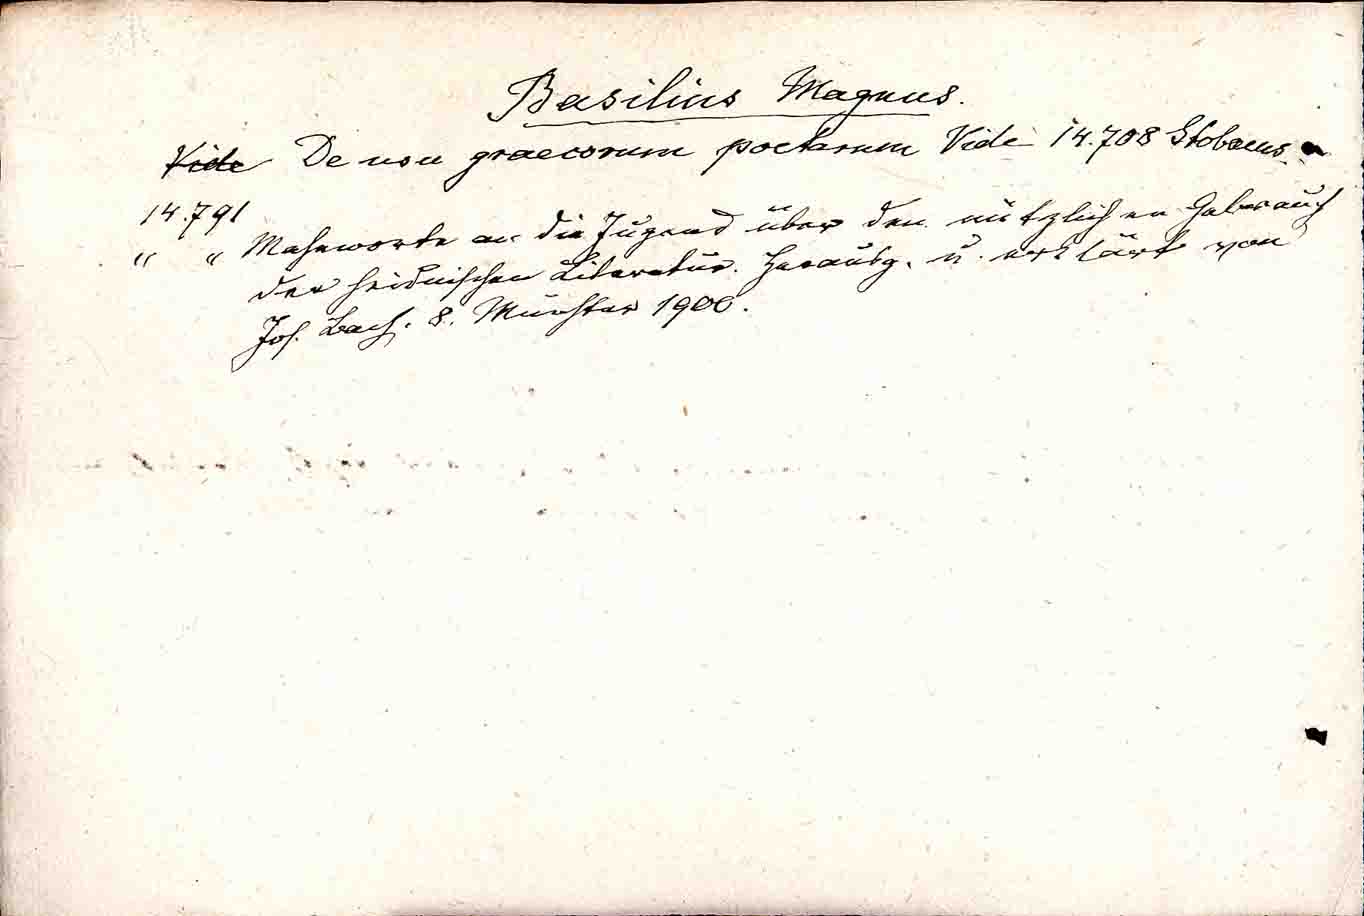 Basilius Magnus.
Vide De usu graecorum poetarum Vide 14.708 Stobaeus.
14.791
" " Mahnworte an die Jugend über den nützlichen Gebrauch
der heidnischen Literatur. Herausg. u. erklärt von
Jos. Bach. 8. Münster 1900.